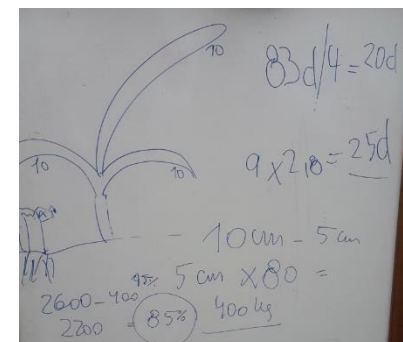 10
83d/4=20d
10
10
9x2,8=25d
- 10cm - 5cm
15% 5cm x80 =
2600-400
400kg
2200 = 85%